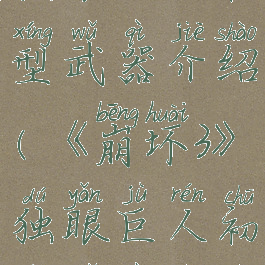 xíng wǔ qì jiè shào
型武器介绍
bēng huài
(《崩坏3》
dú yǎn jù rén chū
独眼巨人初